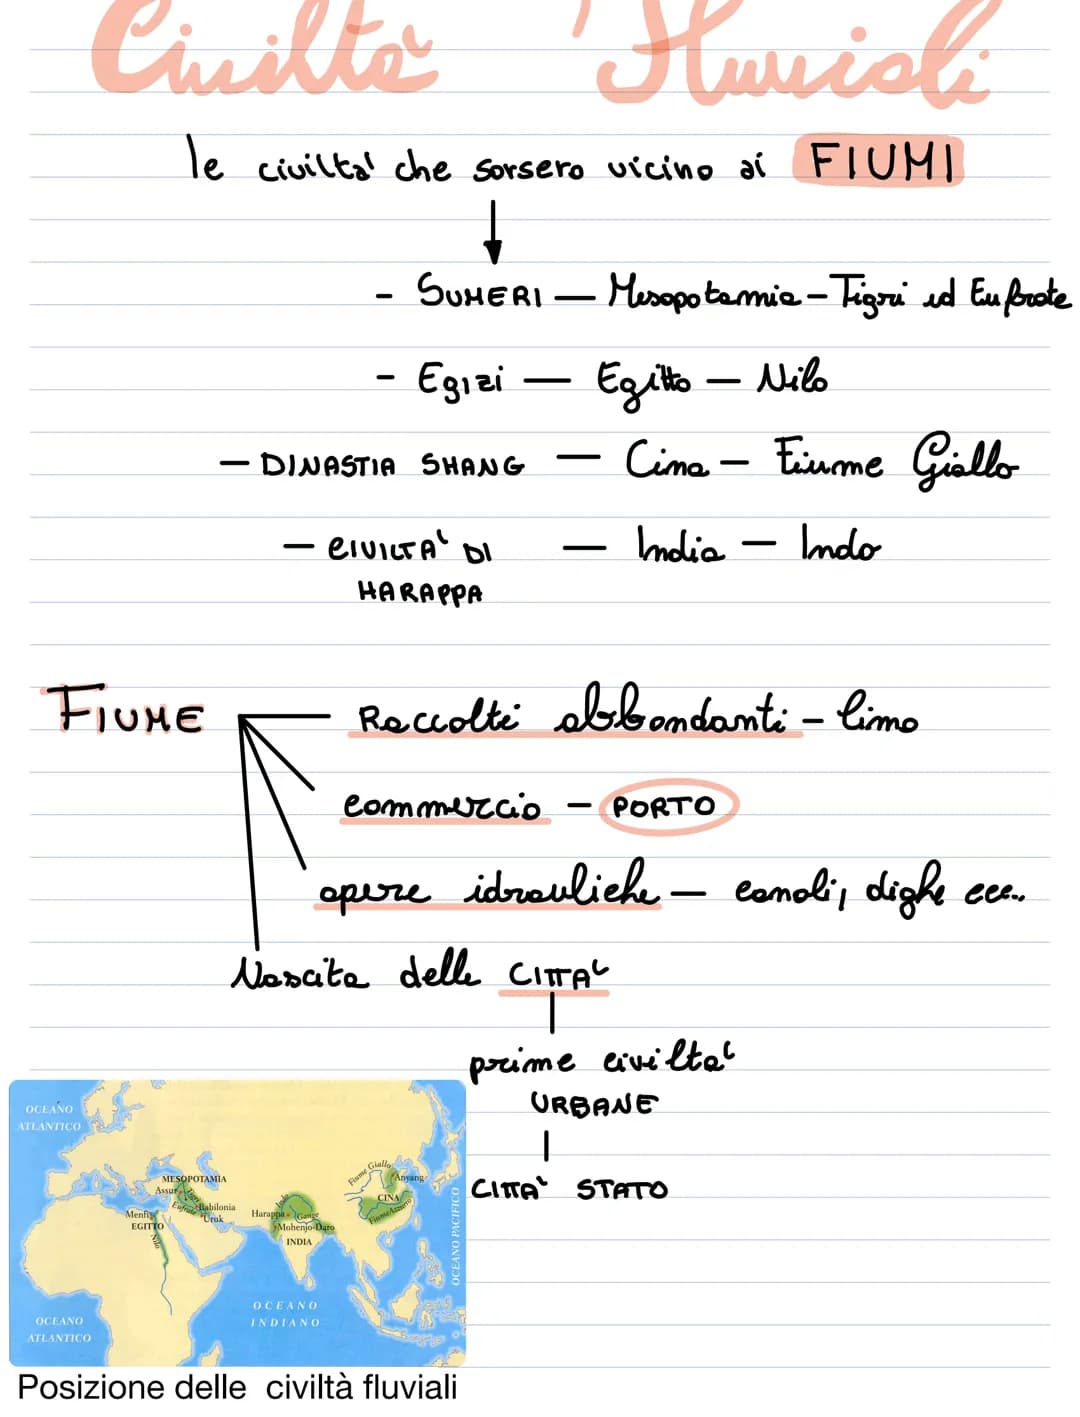 Civiltà Fluviali
le civiltà che sorsero vicino ai FIUMI
- SUMERI — Mesopotamia - Tigri ed Eufrate
- Egizi — Egitto — Nilo
- DINASTIA SHANG — Cina - Fiume Giallo
- CIVILTÀ DI HARAPPA — India - Indo
FIUME
Raccolti abbondanti - limo
commercio - PORTO
opere idrauliche — canali, dighe ecc..
Nascita delle CITTÀ
prime civiltà
URBANE
CITTÀ STATO
OCEANO
ATLANTICO
MESOPOTAMIA
Assur
Tigri
Eufrate
Babilonia
Uruk
Menfi
EGITTO
Nilo
Indo
Harappa
Gange
Mohenjo-Daro
INDIA
Fiume Giallo
Anyang
CINA
Fiume Azzurro
OCEANO PACIFICO
OCEANO
INDIANO
OCEANO
ATLANTICO
Posizione delle civiltà fluviali